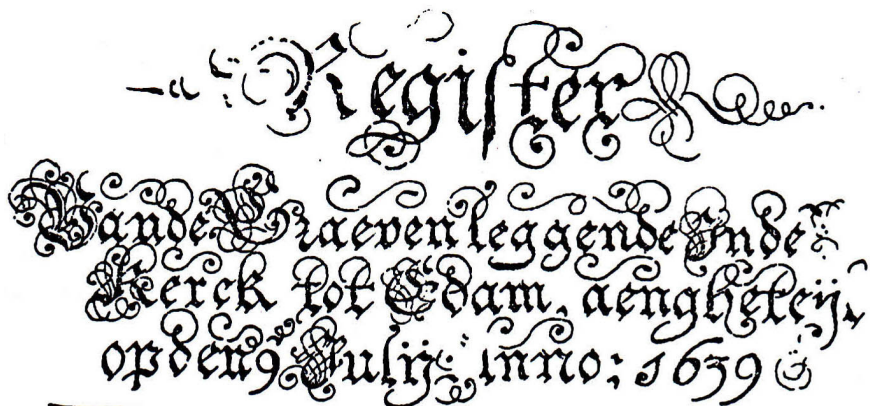 Register
Vande Graeven leggende Inde
Kerck tot Edam, aengheteij
opden 9 Julij Anno: 1639